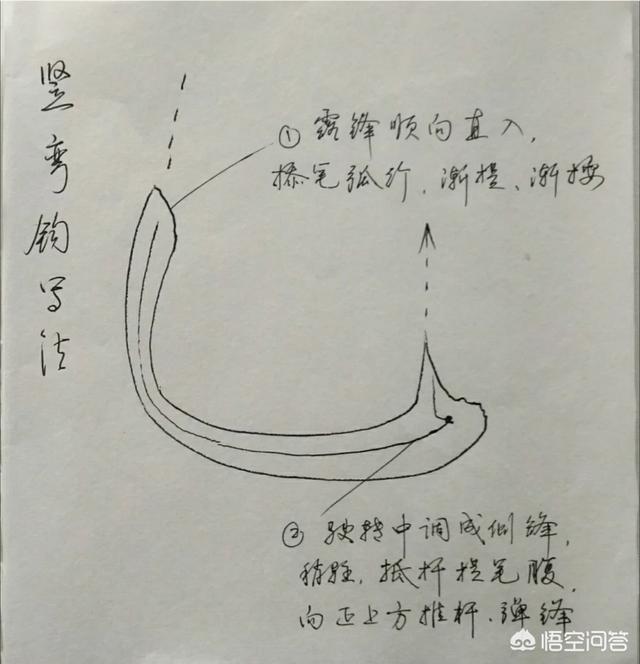 竖弯钩写法
①露锋顺向直入,
捺笔弧行、渐提、渐按
②驶转中调成侧锋,
稍驻,抵杆提笔腹,
向正上方推杆、弹锋
悟空问答